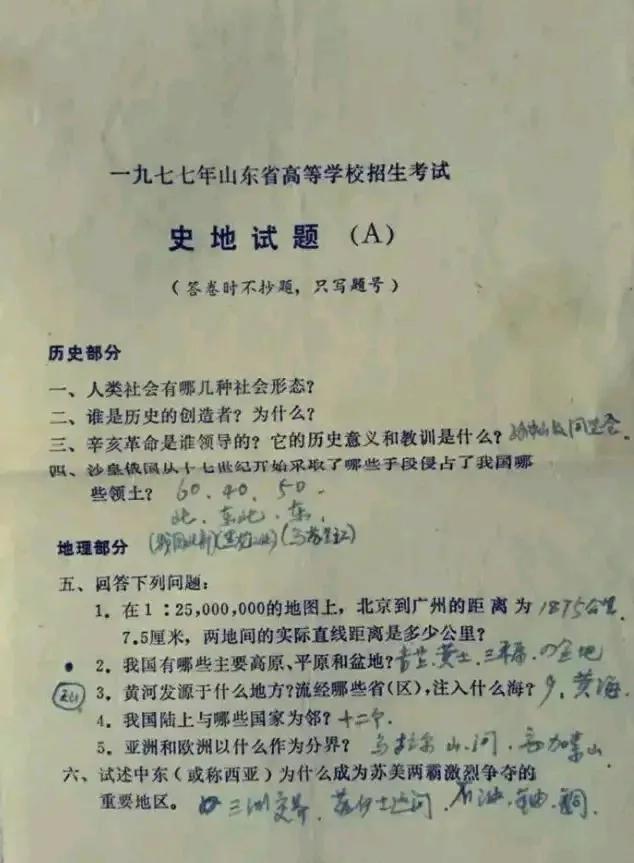 一九七七年山东省高等学校招生考试
史地试题（A）
（答卷时不抄题，只写题号）
历史部分
一、人类社会有哪几种社会形态？
二、谁是历史的创造者？为什么？
三、辛亥革命是谁领导的？它的历史意义和教训是什么？ 同盟会
四、沙皇俄国从十七世纪开始采取了哪些手段侵占了我国哪
些领土？ 60、40、50
北、东北、东
地理部分
五、回答下列问题：
1．在1∶25,000,000的地图上，北京到广州的距离为 1875公里
7.5厘米，两地间的实际直线距离是多少公里？
2．我国有哪些主要高原、平原和盆地？ 青芷、黄土、三平原、四盆地
3．黄河发源于什么地方？流经哪些省(区)，注入什么海？ 9、黄海
4．我国陆上与哪些国家为邻？ 十二个．
5．亚洲和欧洲以什么作为分界？ 乌拉尔山、河、高加索山
六、试述中东（或称西亚）为什么成为苏美两霸激烈争夺的
重要地区。 三洲交界、苏伊士运河、石油